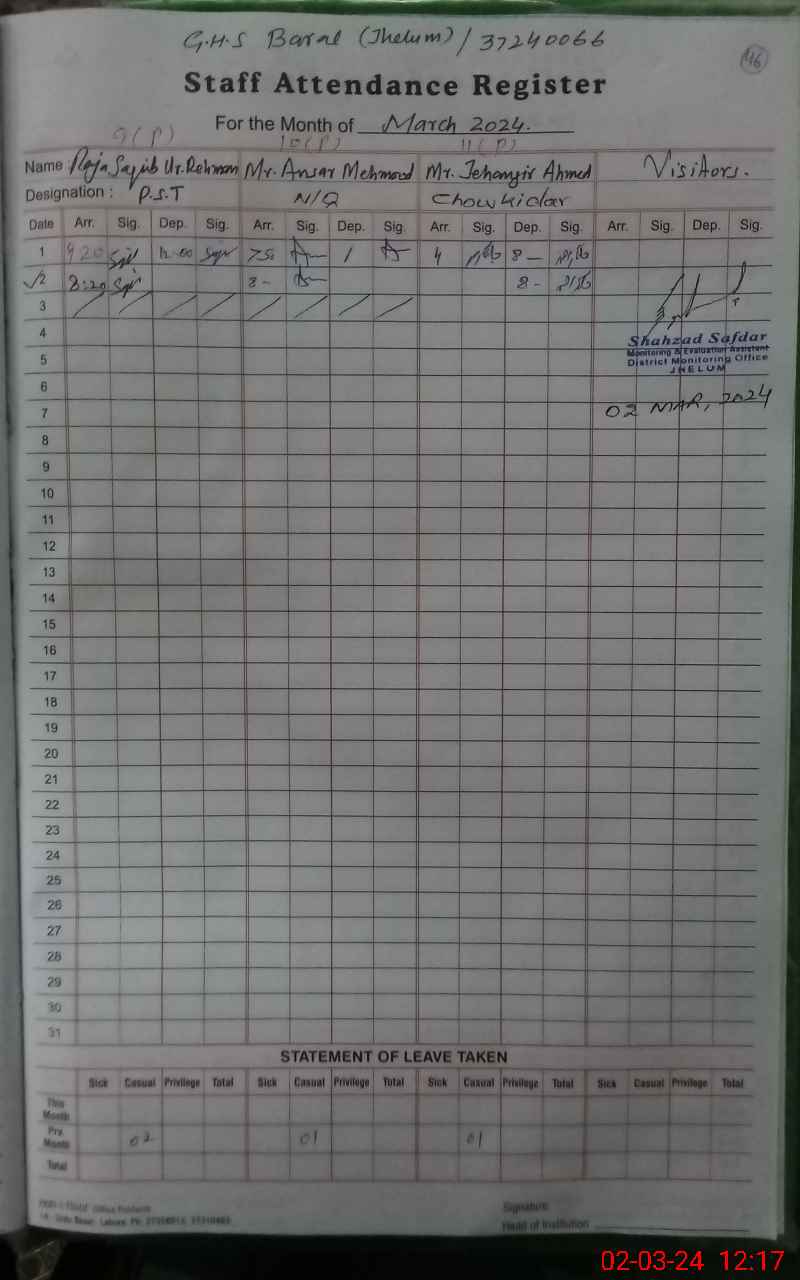 G.H.S Baral (Jhelum) / 37240066
46
Staff Attendance Register
For the Month of March 2024.
9(P) 10(P) 11(P)
Name Raja Saqib Ur.Rehman Mr. Ansar Mehmood Mr. Jehangir Ahmed Visitors.
Designation : P.S.T N/Q Chowkidar
Date Arr. Sig. Dep. Sig. Arr. Sig. Dep. Sig. Arr. Sig. Dep. Sig. Arr. Sig. Dep. Sig.
1 9 20 12.00 750 1 4 8 -
2 8:20 8 - 8 -
3
4
Shahzad Safdar
Monitoring & Evaluation Assistant
5
District Monitoring Office
JHELUM
6
7 02 MAR, 2024
8
9
10
11
12
13
14
15
16
17
18
19
20
21
22
23
24
25
26
27
28
29
30
31
STATEMENT OF LEAVE TAKEN
Sick Casual Privilege Total Sick Casual Privilege Total Sick Casual Privilege Total Sick Casual Privilege Total
This Month
Prv. Month 02 01 01
Total
Signature
Head of Institution
02-03-24 12:17